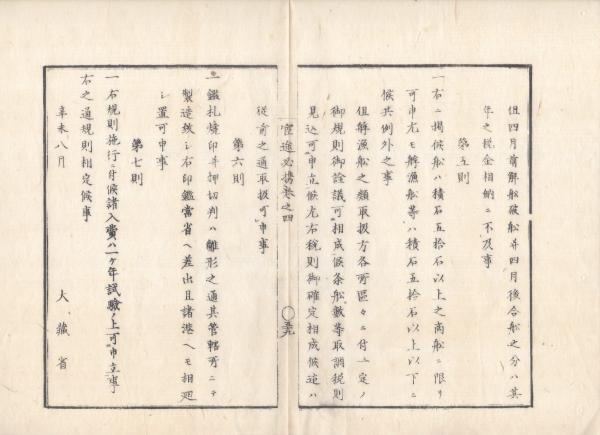 但四月前解船破船并四月後合船之分ハ其
年之税金相納ニ不及事
第五則
一右ニ掲候船ハ積石五拾石以上之商船ニ限リ
可申尤モ解漁船等ハ積石五拾石以上以下ニ
候共例外之事
但解漁船之類取扱方各所區々ニ付一定ノ
御規則御詮議可相成候条船数等取調税則
見込可申立候尤右税則御確定相成候迄ハ
官途必携巻之四
従前之通取扱可申事
第六則
一鑑札燒印并押切判ハ雛形之通其管轄所ニテ
製造致シ右印鑑當省ヘ差出且諸港ヘモ相廻
シ置可申事
第七則
一右規則施行ニ付候諸入費ハ一ケ年試驗ノ上可申立事
右之通規則相定候事
辛未八月
大藏省